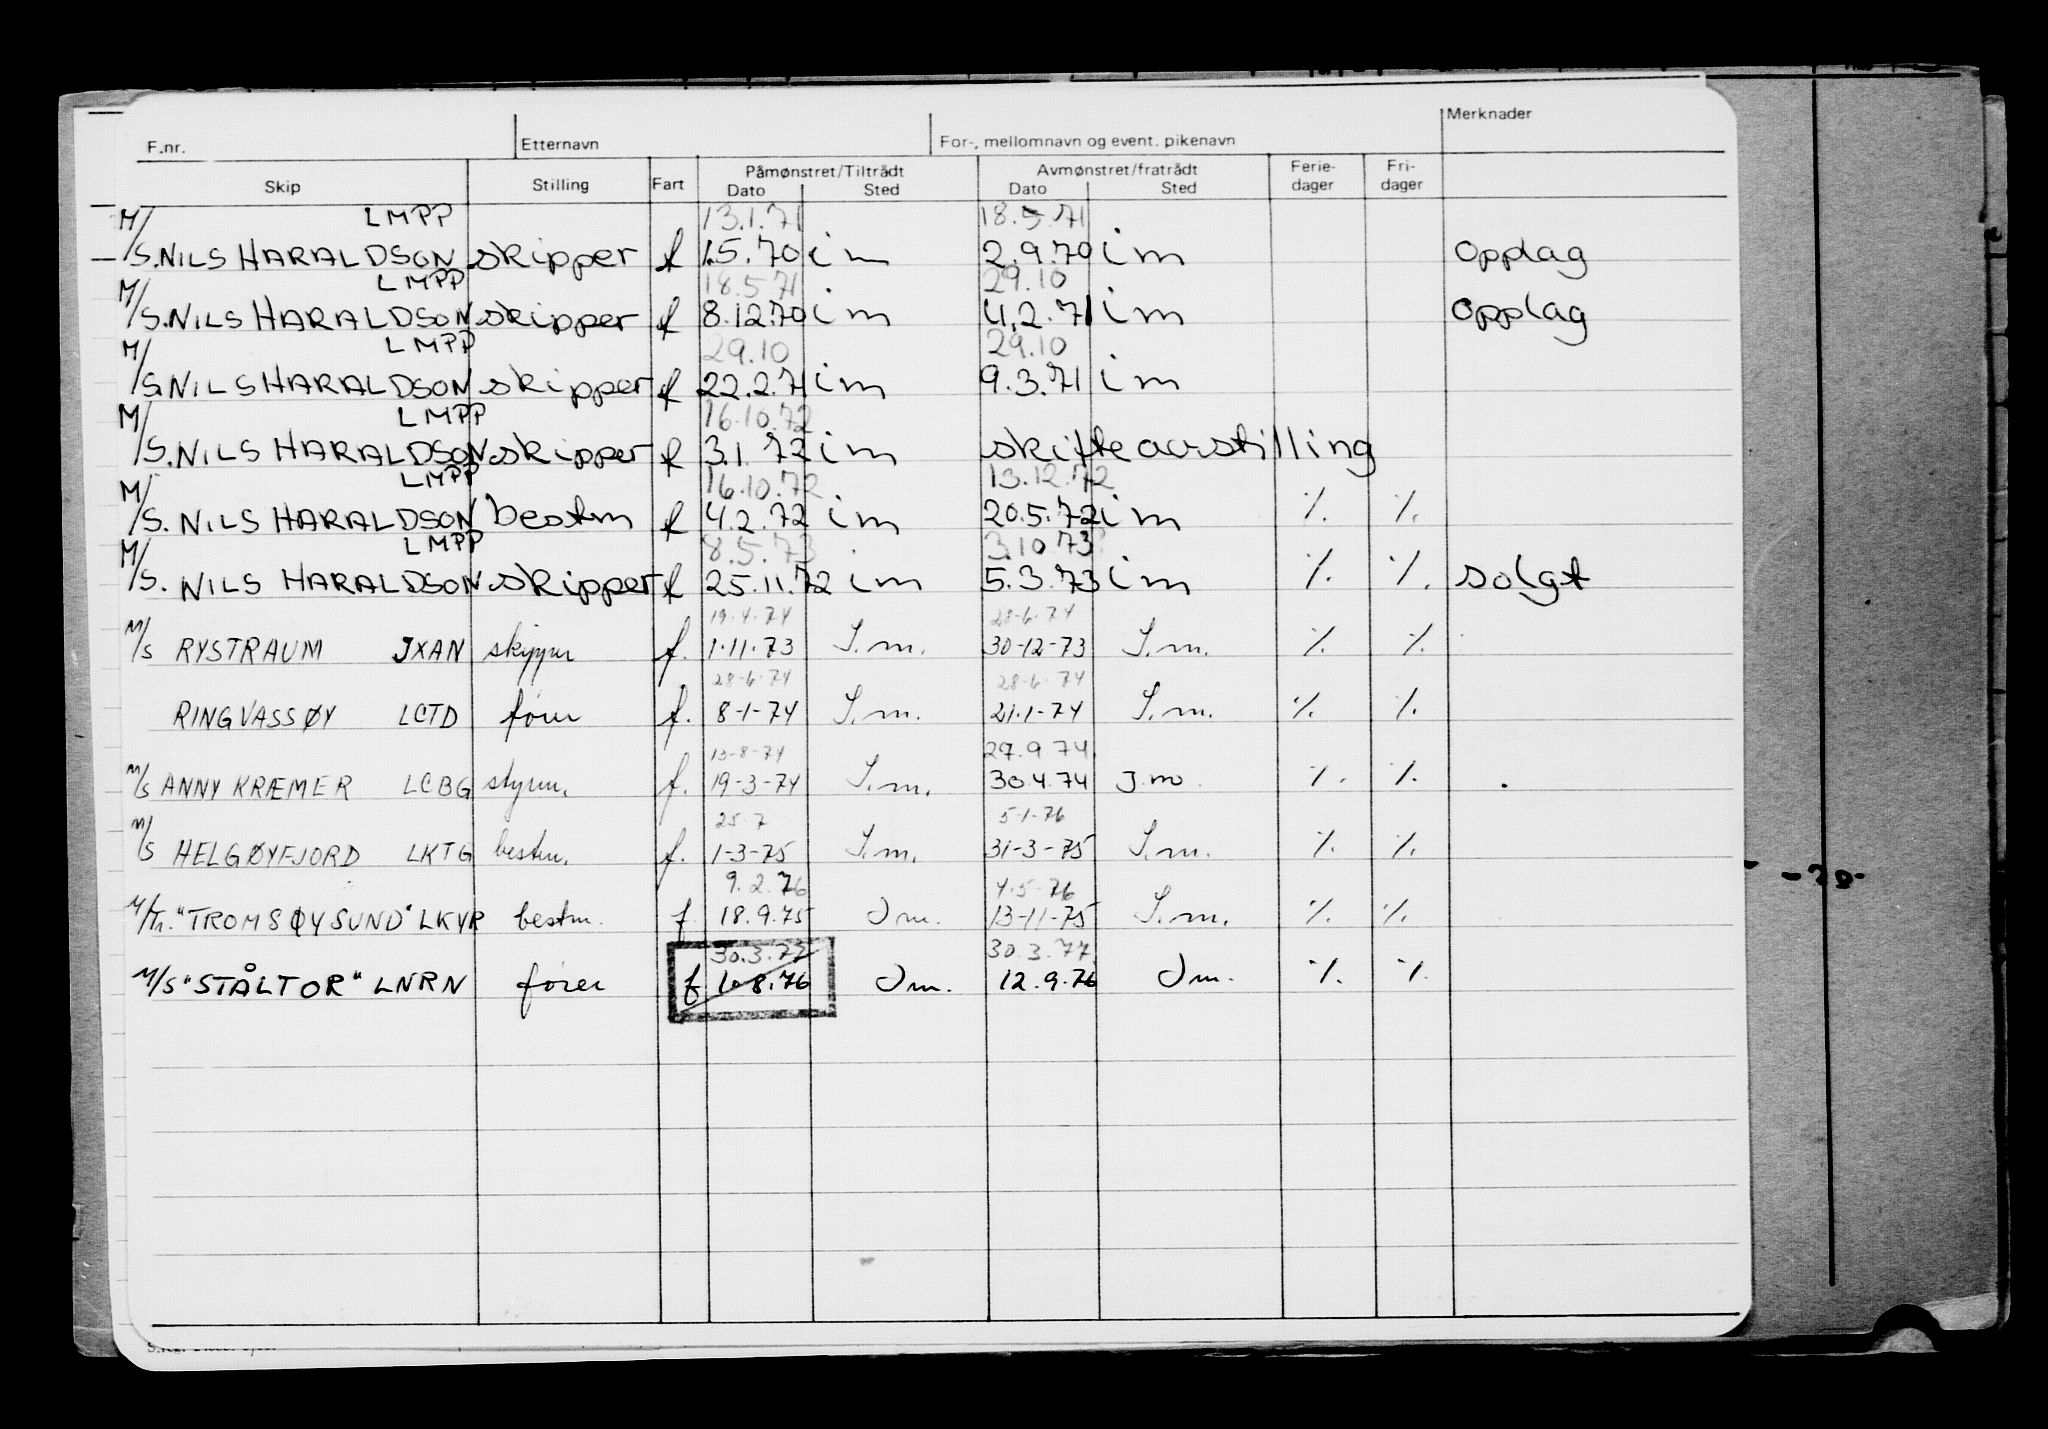 F.nr. Etternavn For-, mellomnavn og event. pikenavn Merknader
Skip Stilling Fart Påmønstret/Tiltrådt Dato Sted Avmønstret/fratrådt Dato Sted Ferie-dager Fri-dager
LMPP 13.1.71 18.5.71
M/S. NILS HARALDSON skipper f 1.5.70 i m 2.9.70 i m Opplag
LMPP 18.5.71 29.10
M/S. NILS HARALDSON skipper f 8.12.70 i m 4.2.71 i m Opplag
LMPP 29.10 29.10
M/S. NILS HARALDSON skipper f 22.2.71 i m 9.3.71 i m
LMPP 16.10.72
M/S. NILS HARALDSON skipper f 3.1.72 i m skifte avstilling
LMPP 16.10.72 13.12.72
M/S. NILS HARALDSON bestm f 4.2.72 i m 20.5.72 i m ٪. ٪.
LMPP 8.5.73 3.10.73
M/S. NILS HARALDSON skipper f 25.11.72 i m 5.3.73 i m ٪. ٪. solgt
19-4-74 28-6-74
M/S RYSTRAUM JXAN skipper f. 1-11-73 I.m. 30-12-73 I.m. ٪. ٪.
28-6-74 28-6-74
RINGVASSØY LCTD fører f. 8-1-74 I.m. 21-1-74 I.m. ٪. ٪.
13-8-74 27.9 74
M/S ANNY KRÆMER LCBG styrm. f. 19-3-74 I.m. 30.4.74 I.m. ٪. ٪.
25.7 5-1-76
M/S HELGØYFJORD LKTG bestm. f. 1-3-75 I.m. 31-3-75 I.m. ٪. ٪.
9.2.76 4.5-76
M/Tr. "TROMSØYSUND" LKYR bestm. f 18.9.75 I m. 13-11-75 I.m. ٪. ٪.
30.3.77 30.3.77
M/S "STÅLTOR" LNRN fører f 10.8.76 I m. 12.9.76 I m. ٪. ٪.